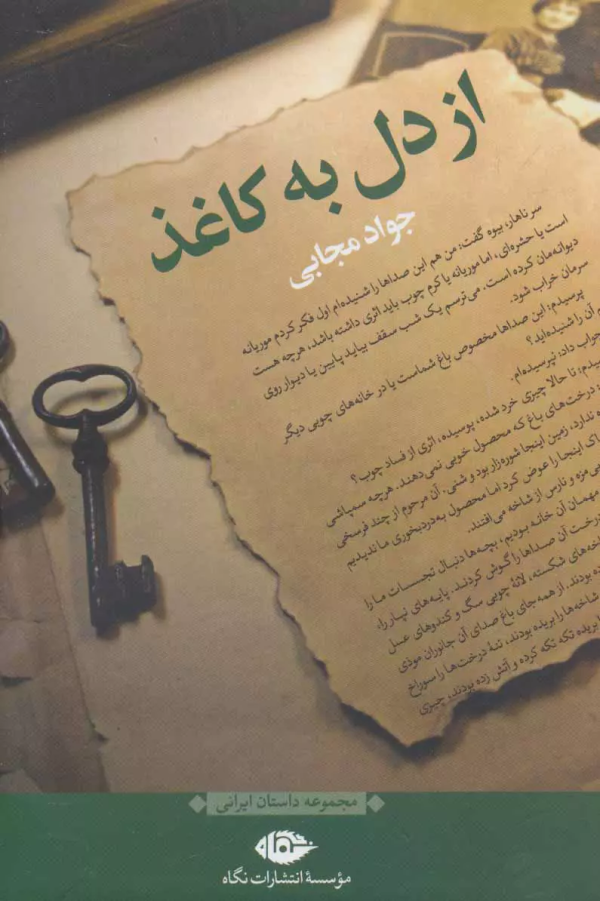 از دل به کاغذ
جواد مجابی
سر ناهار، بیوه گفت: من هم این صداها را شنیده‌ام اول فکر کردم موریانه
است یا حشره‌ای، اما موریانه یا کرم چوب باید اثری داشته باشد، هرچه هست
دیوانه‌مان کرده است. می‌ترسم یک شب سقف بیاید پایین یا دیوار روی
سرمان خراب شود.
پرسیدم: این صداها مخصوص باغ شماست یا در خانه‌های چوبی دیگر
آن را شنیده‌اید؟
جواب داد: نپرسیده‌ام.
تا حالا چیزی خرد شده، پوسیده، اثری از فساد چوب؟
درخت‌های باغ که محصول خوبی نمی‌دهند. هرچه سمپاشی
ندارد، زمین اینجا شوره‌زار بود و شنی. آن مرحوم از چند فرسخی
اینجا را عوض کرد اما محصول به‌دردبخوری ما ندیدیم
مزه و نارس از شاخه می‌افتند.
مهمان آن خانه بودیم، بچه‌ها دنبال تجسسات ما را
درخت آن صداها را گوش کردند. پایه‌های نپار را،
شکسته، لانهٔ چوبی سگ و کندوهای عسل
بودند. از همه‌جای باغ صدای آن جانوران موذی
شاخه‌ها را بریده بودند، تنهٔ درخت‌ها را سوراخ
بریده تکه تکه کرده و آتش زده بودند، چیزی
مجموعه داستان ایرانی
نگاه
مؤسسهٔ انتشارات نگاه